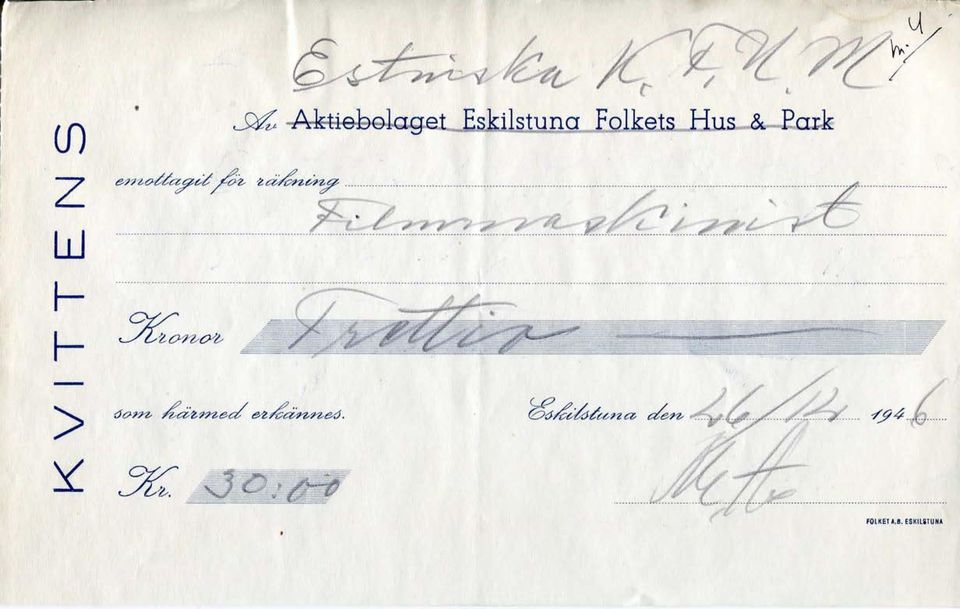 Estniska K. F. U. M.
Av Aktiebolaget Eskilstuna Folkets Hus & Park
KVITTENS
emottagit för räkning
Filmmaskinist
Kronor Trettio
som härmed erkännes. Eskilstuna den 26/12 1946
Kr. 30:00
FOLKET A.B. ESKILSTUNA